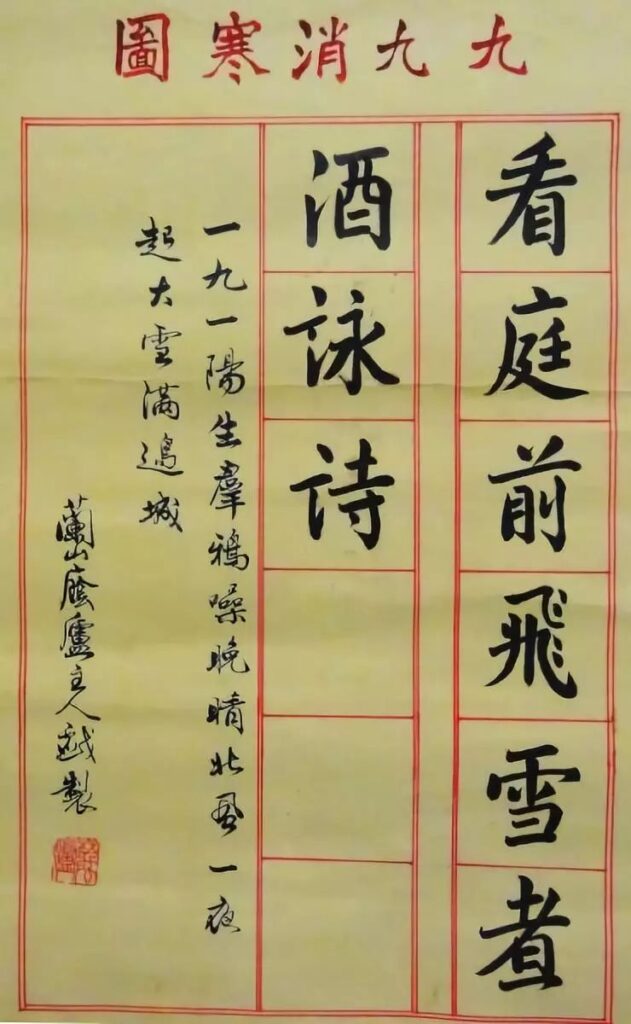 九九消寒圖
看庭前飛雪煮
酒詠詩
一九一陽生羣鴉噪晚晴北風一夜
起大雪滿邊城
蘭山蔭廬主人越製